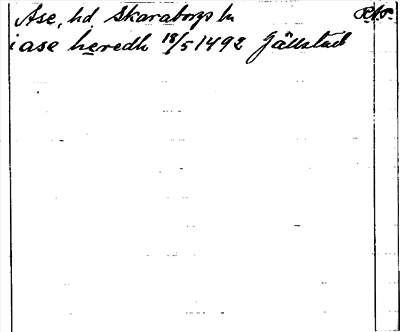 Åse, hd Skaraborgs ln R.A.P.
i ase heredh 18/5 1492 Jällstad